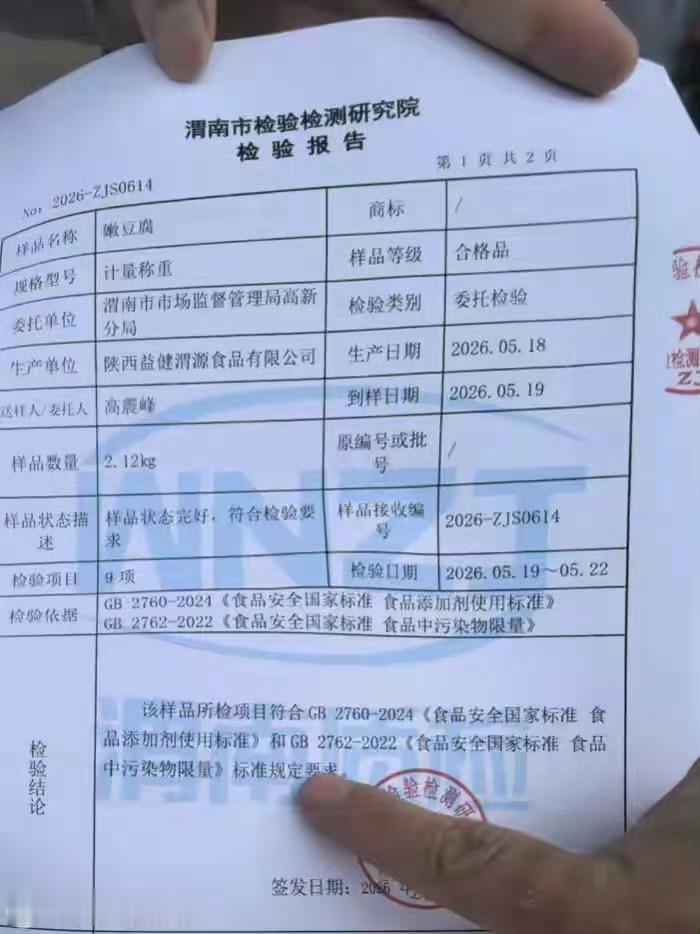 渭南市检验检测研究院
检验报告
No: 2026-ZJS0614
第 1 页 共 2 页
样品名称 嫩豆腐 商标 /
规格型号 计量称重 样品等级 合格品
委托单位 渭南市市场监督管理局高新分局 检验类别 委托检验
生产单位 陕西益健渭源食品有限公司 生产日期 2026.05.18
送样人/委托人 高震峰 到样日期 2026.05.19
样品数量 2.12kg 原编号或批号 /
样品状态描述 样品状态完好，符合检验要求 样品接收编号 2026-ZJS0614
检验项目 9 项 检验日期 2026.05.19～05.22
检验依据 GB 2760-2024《食品安全国家标准 食品添加剂使用标准》
GB 2762-2022《食品安全国家标准 食品中污染物限量》
检验结论
该样品所检项目符合 GB 2760-2024《食品安全国家标准 食
品添加剂使用标准》和GB 2762-2022《食品安全国家标准 食品
中污染物限量》标准规定要求。
签发日期：2026 年
WNZT
检验检测研